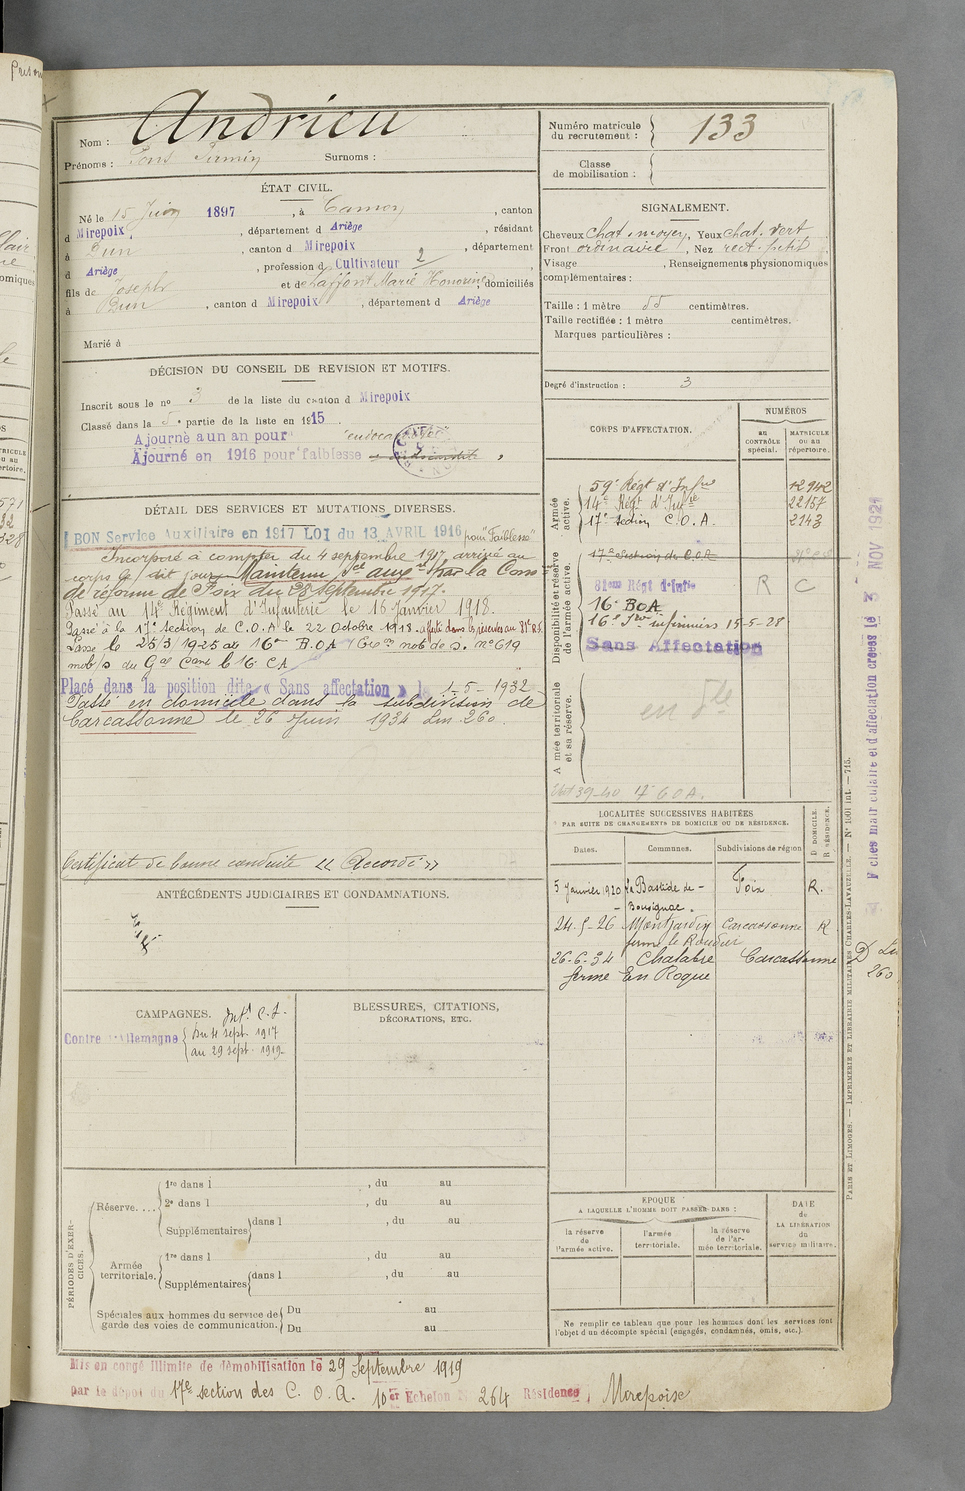 Nom : Andrieu
Prénoms : Pons Firmin Surnoms :
Numéro matricule
du recrutement : 133
Classe
de mobilisation :
ÉTAT CIVIL.
Né le 15 Juin 1897, à Camon, canton
d Mirepoix, département d Ariège, résidant
à Dun, canton d Mirepoix, département
d Ariège, profession d Cultivateur 2
fils de Joseph et de Laffont Marie Honorine, domiciliés
à Dun, canton d Mirepoix, département d Ariège
Marié à
SIGNALEMENT.
Cheveux chat. moyen, Yeux chat. vert
Front ordinaire, Nez rect. petit
Visage , Renseignements physionomiques
complémentaires :
Taille : 1 mètre 55 centimètres.
Taille rectifiée : 1 mètre centimètres.
Marques particulières :
Degré d'instruction : 3
DÉCISION DU CONSEIL DE REVISION ET MOTIFS.
Inscrit sous le nº 3 de la liste du canton d Mirepoix
Classé dans la 5e partie de la liste en 1915.
Ajourné a un an pour
Ajourné en 1916 pour faiblesse
DÉTAIL DES SERVICES ET MUTATIONS DIVERSES.
BON Service Auxiliaire en 1917 LOI du 13 AVRIL 1916 pour "Faiblesse"
Incorporé à compter du 4 septembre 1917 arrivé au
corps le dit jour. Maintenu Sce auxre par la Com
de réforme de Foix du 28 septembre 1917.
Passé au 14e Régiment d'Infanterie le 16 Janvier 1918.
Passé à la 17e section de C.O.A le 22 Octobre 1918. affecté dans les réserves au 81e R.I.
Passé le 25/3/1925 au 16e B.O.A nº 619
mob/s du Gal Cant le 16 CA
Placé dans la position dite « Sans affectation » le 1-5-1932
Passé en domicile dans la subdivision de
Carcassonne le 26 Juin 1934 Lin 260.
Certificat de bonne conduite « Accordé »
CORPS D'AFFECTATION.
NUMÉROS
au
CONTRÔLE
spécial.
MATRICULE
ou au
répertoire.
Armée
active.
59e Régt d'Infrie 12942
14e Régt d'Infrie 22157
17e section C.O.A. 2143
Disponibilité et réserve
de l'armée active.
17e Section de C.O.A
81eme Régt d'Infie R C
16e BOA
16e Son infirmiers 15-5-28
Sans Affectation
Armée territoriale
et sa réserve.
39-40 17 C O A.
Fiches matriculaire et d'affectation créées le 3 NOV 1921
LOCALITÉS SUCCESSIVES HABITÉES
PAR SUITE DE CHANGEMENTS DE DOMICILE OU DE RÉSIDENCE.
Dates. Communes. Subdivisions de région
D. DOMICILE.
R. RÉSIDENCE.
5 Janvier 1920 La Bastide de- Foix R.
- Bousignac.
24-5-26 Montjardin Carcassonne R
ferme le Roudier
26-6-34 Chalabre Carcassonne D Lin
ferme En Roque 260
ANTÉCÉDENTS JUDICIAIRES ET CONDAMNATIONS.
CAMPAGNES. Intr C.S.
Contre Allemagne
du 4 sept. 1917
au 29 sept. 1919
BLESSURES, CITATIONS,
DÉCORATIONS, ETC.
PÉRIODES D'EXERCICES.
Réserve....
1re dans l , du au
2e dans l , du au
Supplémentaires dans l , du au
Armée
territoriale.
1re dans l , du au
Supplémentaires dans l , du au
Spéciales aux hommes du service de
garde des voies de communication.
Du au
Du au
ÉPOQUE
A LAQUELLE L'HOMME DOIT PASSER DANS :
la réserve
de
l'armée active.
l'armée
territoriale.
la réserve
de l'armée territoriale.
DATE
de
LA LIBÉRATION
du
service militaire.
Ne remplir ce tableau que pour les hommes dont les services font
l'objet d'un décompte spécial (engagés, condamnés, omis, etc.).
PARIS ET LIMOGES. — IMPRIMERIE ET LIBRAIRIE MILITAIRES CHARLES-LAVAUZELLE. — Nº 1501 int. — 715.
Mis en congé illimité de démobilisation le 29 Septembre 1919
par le dépot du 17e section des C. O. A. 10er Echelon N 264 Résidence, Mirepoix